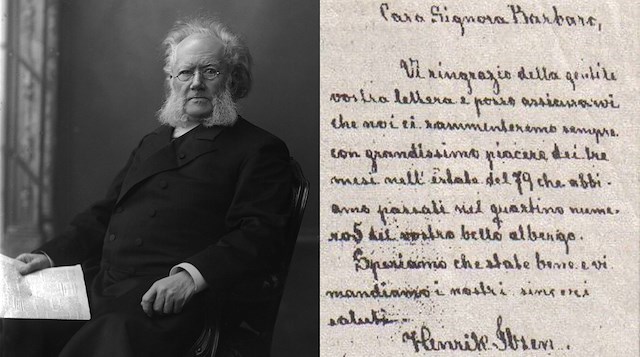 Cara Signora Barbaro,
Vi ringrazio della gentile
vostra lettera e posso assicurarvi
che noi ci rammenteremo sempre
con grandissimo piacere dei tre
mesi nell'estate del 79 che abbi-
amo passati nel quartino nume-
ro 5 del vostro bello albergo.
Speriamo che state bene e vi
mandiamo i nostri sinceri
saluti
Henrik Ibsen.